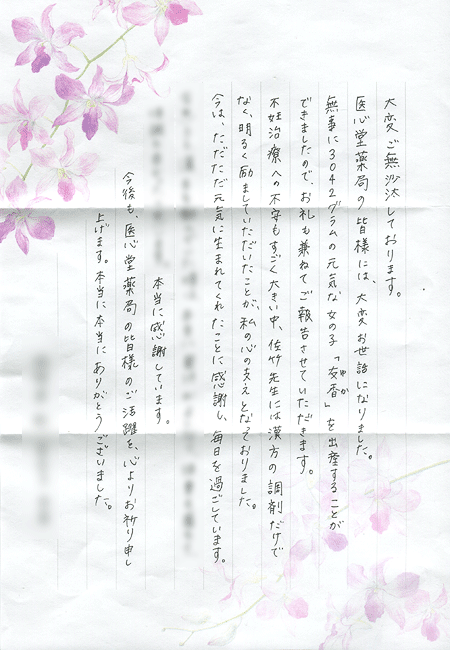 大変ご無沙汰しております。
医心堂薬局の皆様には、大変お世話になりました。
無事に3042グラムの元気な女の子「友香」を出産することが
ゆか
できましたので、お礼も兼ねてご報告させていただきます。
不妊治療への不安もすごく大きい中、佐竹先生には漢方の調剤だけで
なく、明るく励ましていただいたことが、私の心の支えとなっておりました。
今は、ただただ元気に生まれてくれたことに感謝し、毎日を過ごしています。
本当に感謝しています。
今後も、医心堂薬局の皆様のご活躍を、心よりお祈り申し
上げます。本当に本当にありがとうございました。